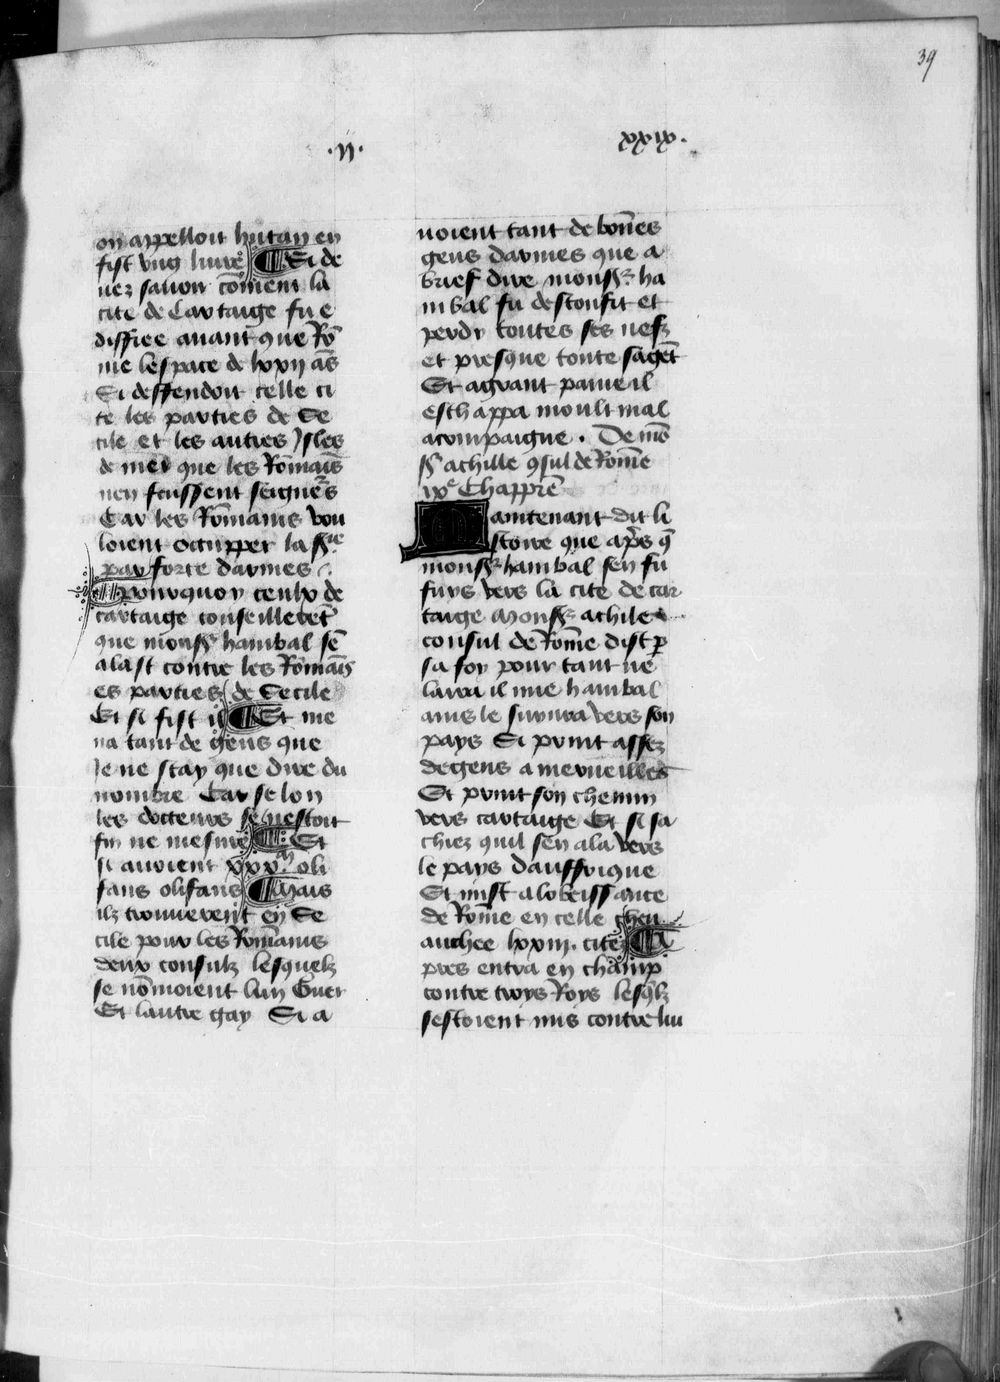 39
.ii.
xxix.
on appelloit hutan en
fist ung livre ¶ Si de
vez savoir coment la
cite de Cartaige fu e
diffiee avant que Ro͞
me lespace de lxxii a͞s
Si deffendoit celle ci
te les parties de Se
cile et les autres Isles
de mer que les Roma͞is
nen feussent seigne͞rs
Car les Romains vou
loient occupper la sr͞ie
par force darmes .
¶ Pourquoy ceulx de
cartaige conseilleret͞
que monsr͞ hanibal se͞
alast contre les Roma͞is
es parties de Secile
Et si fist il ¶ Et me
na tant de gens que
Je ne scay que dire du
nombre Car selon
les docteurs se nestoit
fin ne mesure ¶ Et
si avoient xxxm oli
fans olifans ¶ Mais
ilz trouverent en Se
cile pour les Romains
deux consulz lesquelz
se no͞moient lun Guer
Et lautre gay Si a
voient tant de bon͞es
gens darmes que a
brief dire monsr͞ ha
nibal fu desconfit et
perdy toutes ses nefz
et presque toute sa get͞
Et a grant paine il
eschappa moult mal
acompaigne . De mo͞
sr͞ achille ꝯsul de Rom͞e
ixe Chappre͞
Maintenant dit li
stoire que apr͞s q͞
monsr͞ hanibal sen fu
fuys vers la cite de car
taige Monsr͞ achiles
consul de Rom͞e dist ꝑ
sa foy pour tant ne
laira il mie hanibal
ains le suivra vers son
pays Si print assez
de gens a merveilles
Et print son chemin
vers cartaige Et si sa
chiez quil sen ala vers
le pays dauffrique
Et mist a lobeissance
de Rom͞e en celle chev
auchee lxxiii. cites ¶ A
pres entra en champ
contre troys Roys lesq͞lz
sestoient mis contre lui